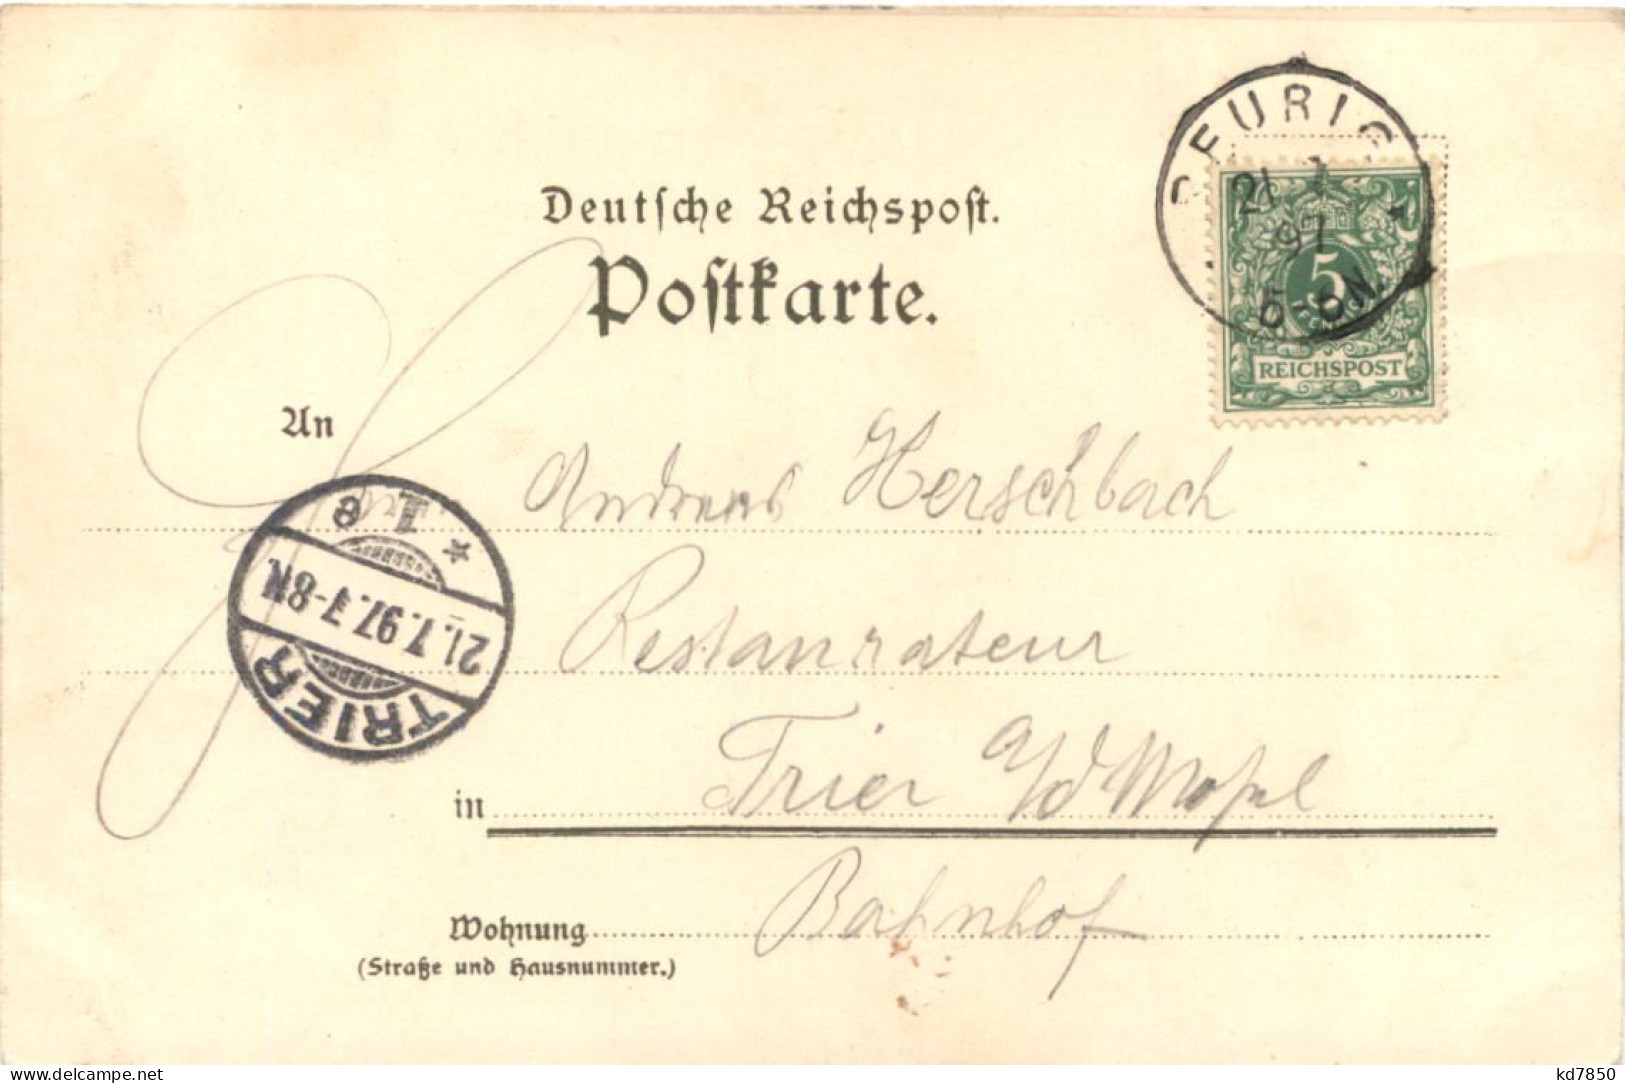 Deutsche Reichspost.
Postkarte.
BEURIG
21 7
97
5-6N.
5
REICHSPOST
An
Andreas Herschbach
Restaurateur
in Trier a/d Mosel
Wohnung Bahnhof
(Straße und Hausnummer.)
TRIER
21.7.97.7-8N.
* 1 e
www.delcampe.net
kd7850